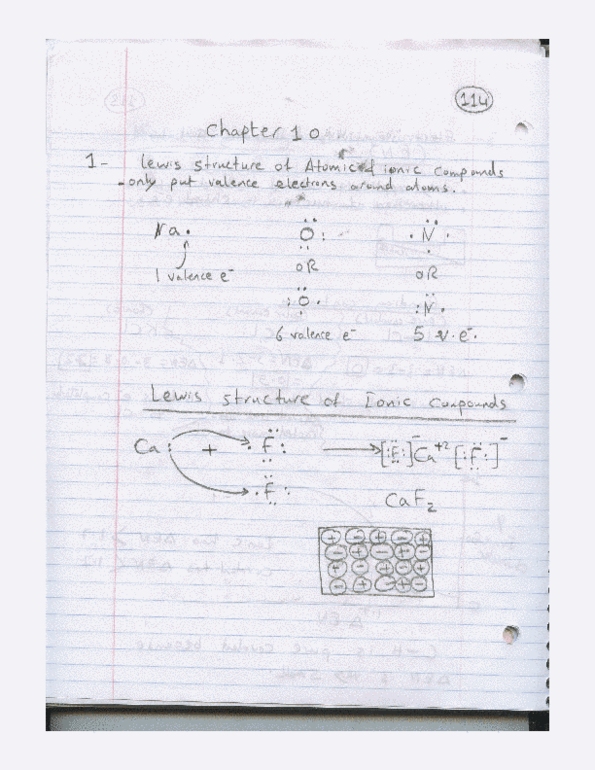 114
Chapter 10
1- Lewis structure of Atomic & ionic compounds
- only put valence electrons around atoms.
Na· :Ö: ·N̈·
1 valence e⁻ OR OR
:Ö· :N̈·
6 valence e⁻ 5 v.e⁻.
Lewis structure of Ionic Compounds
Ca: + ·F: → [:F:]⁻ Ca⁺² [:F:]⁻
·F:
CaF₂
+ - + - +
- + - + -
+ - + - +
- + - + -